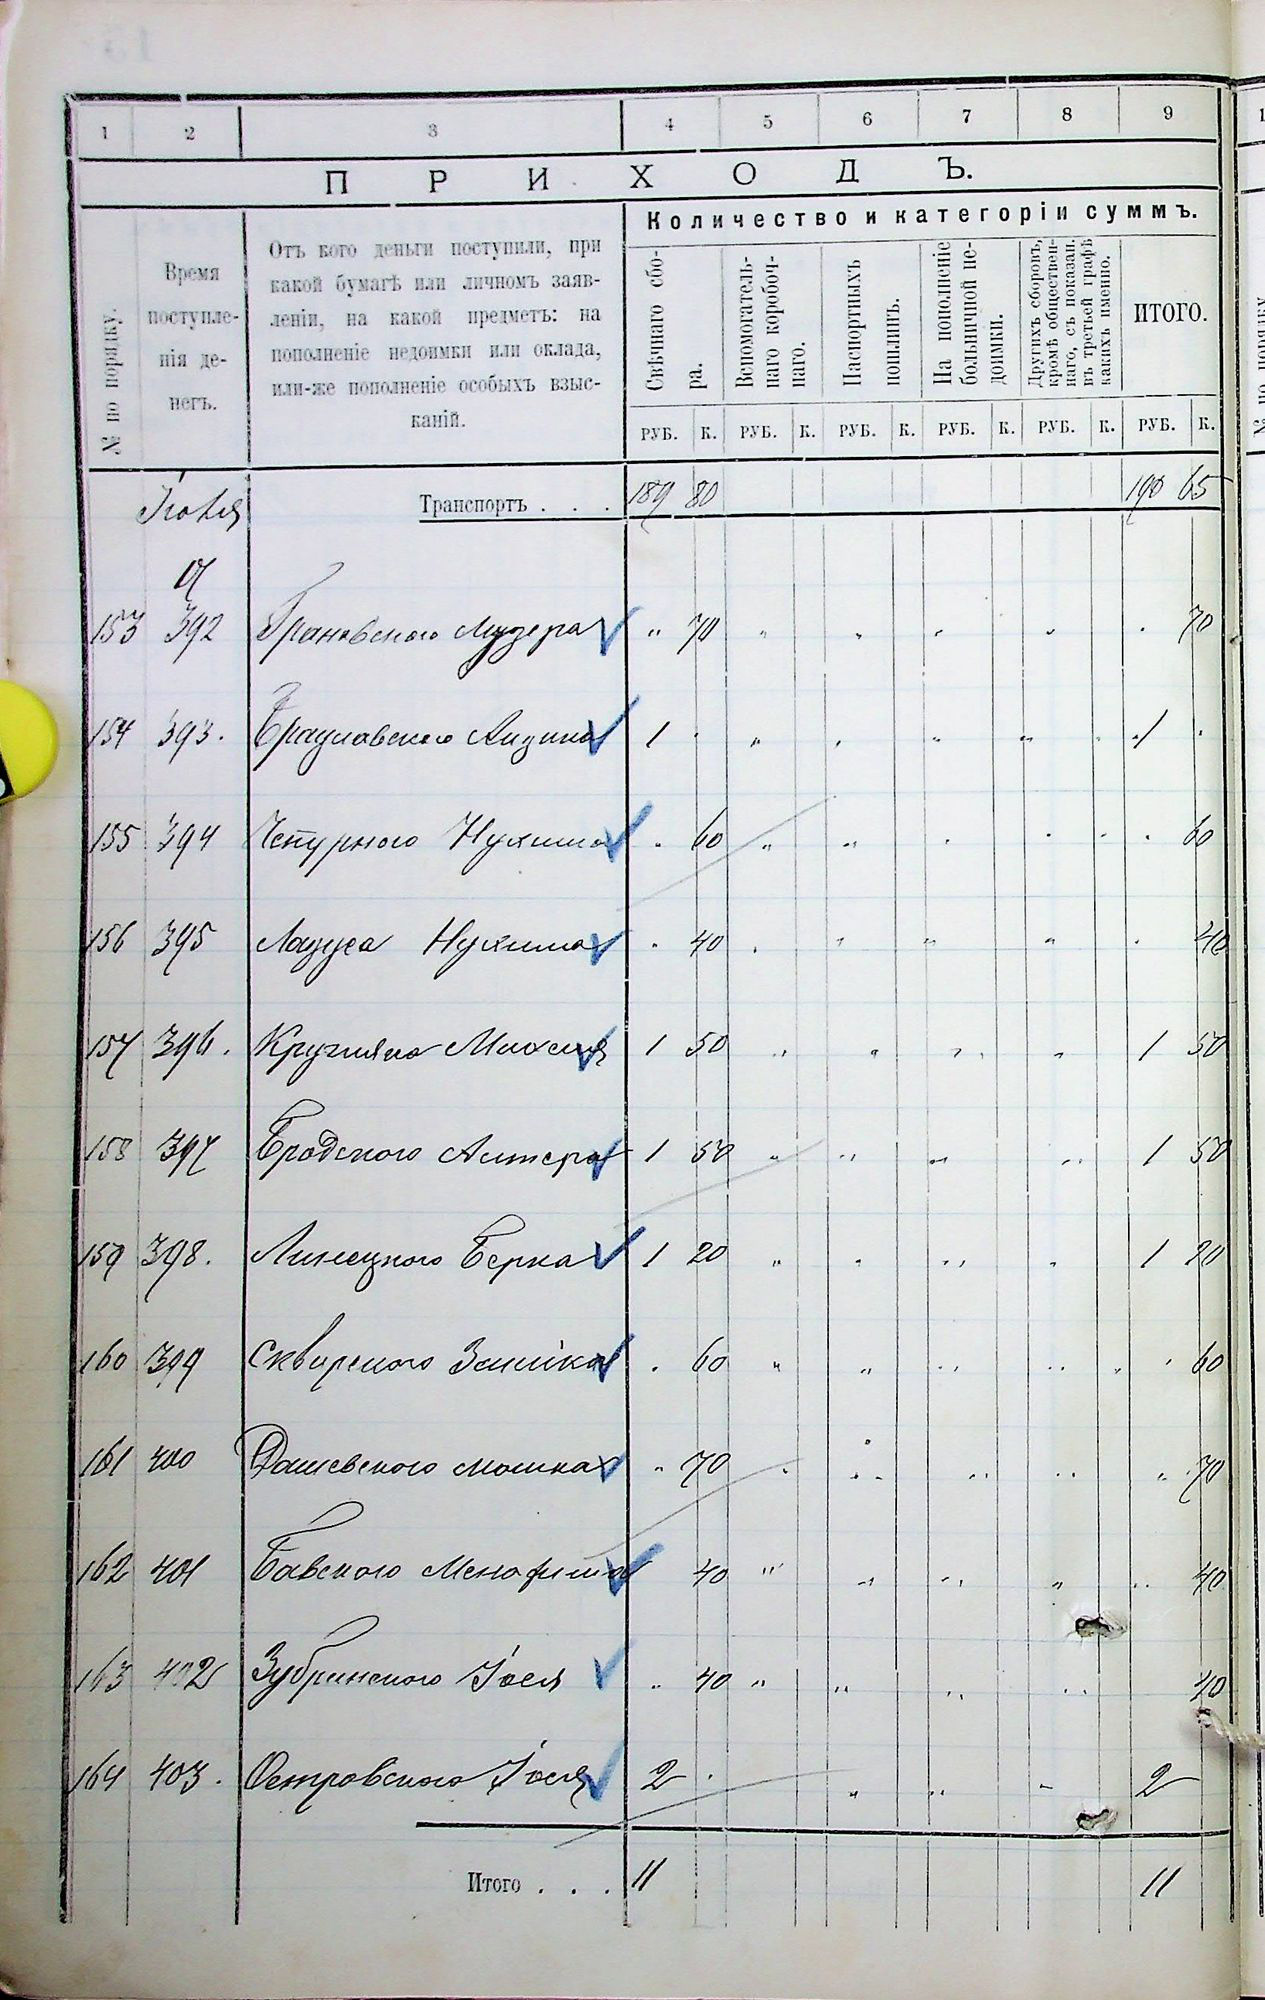 1 2 3 4 5 6 7 8 9
ПРИХОДЪ.
№ по порядку.
Время поступле-
нія де-
негъ.
Отъ кого деньги поступили, при
какой бумагѣ или личномъ заяв-
леніи, на какой предметъ: на
пополненіе недоимки или оклада,
или-же пополненіе особыхъ взыс-
каній.
Количество и категоріи суммъ.
Свѣчнаго сбо-
ра.
Вспомогатель-
наго коробоч-
наго.
Паспортныхъ
пошлинъ.
На пополненіе
больничной не-
доимки.
Другихъ сборовъ,
кромѣ обществен-
наго, съ показан.
въ третьей графѣ
какихъ именно.
ИТОГО.
РУБ. К. РУБ. К. РУБ. К. РУБ. К. РУБ. К. РУБ. К.
Іюля Транспортъ . . . 189 80 190 65
17
153 392 Грановского Лузера " 70 " " " " " 70
154 393. Брацлавского Айзика 1 " " " " " 1 "
155 394 Чепурного Нухима " 60 " " " " " 60
156 395 Лазуса Нухима " 40 " " " " " 40
157 396. Кругляка Михеля 1 50 " " " " 1 50
158 397 Бродского Алтера 1 50 " " " " 1 50
159 398. Линецкого Берка 1 20 " " " " 1 20
160 399 Сквирского Зейлика " 60 " " " " " 60
161 400 Дашевского Мошка " 70 " " " " " 70
162 401 Бавского 40 " " " " " 40
163 402 Зубринского Іося " 40 " " " " 40
164 403. Островского Іося 2 " " " " 2
Итого . . . 11 11